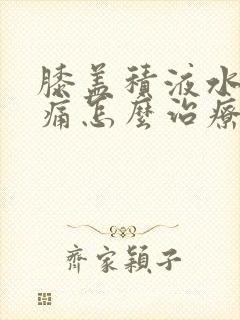 膝盖積液水
痛怎麽治療
齊家穎子